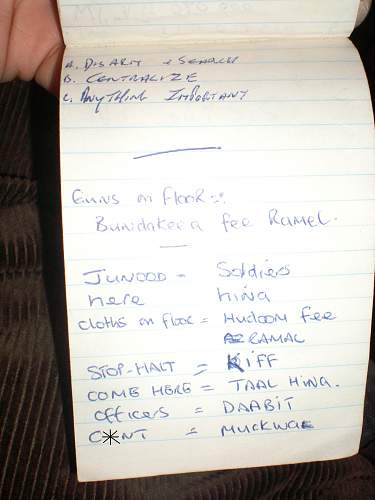 a. DISARM + SEARCH
b. CENTRALIZE
c. ANYTHING IMPORTANT
GUNS on Floor:-
Bundakeea fee RAMEL.
JUNOOD = Soldiers
here hina
cloths on floor = Hudoom fee
RAMAL
STOP-HALT = KIFF
COME HERE = TAAL HINA.
officers = DAABIT
C*NT =